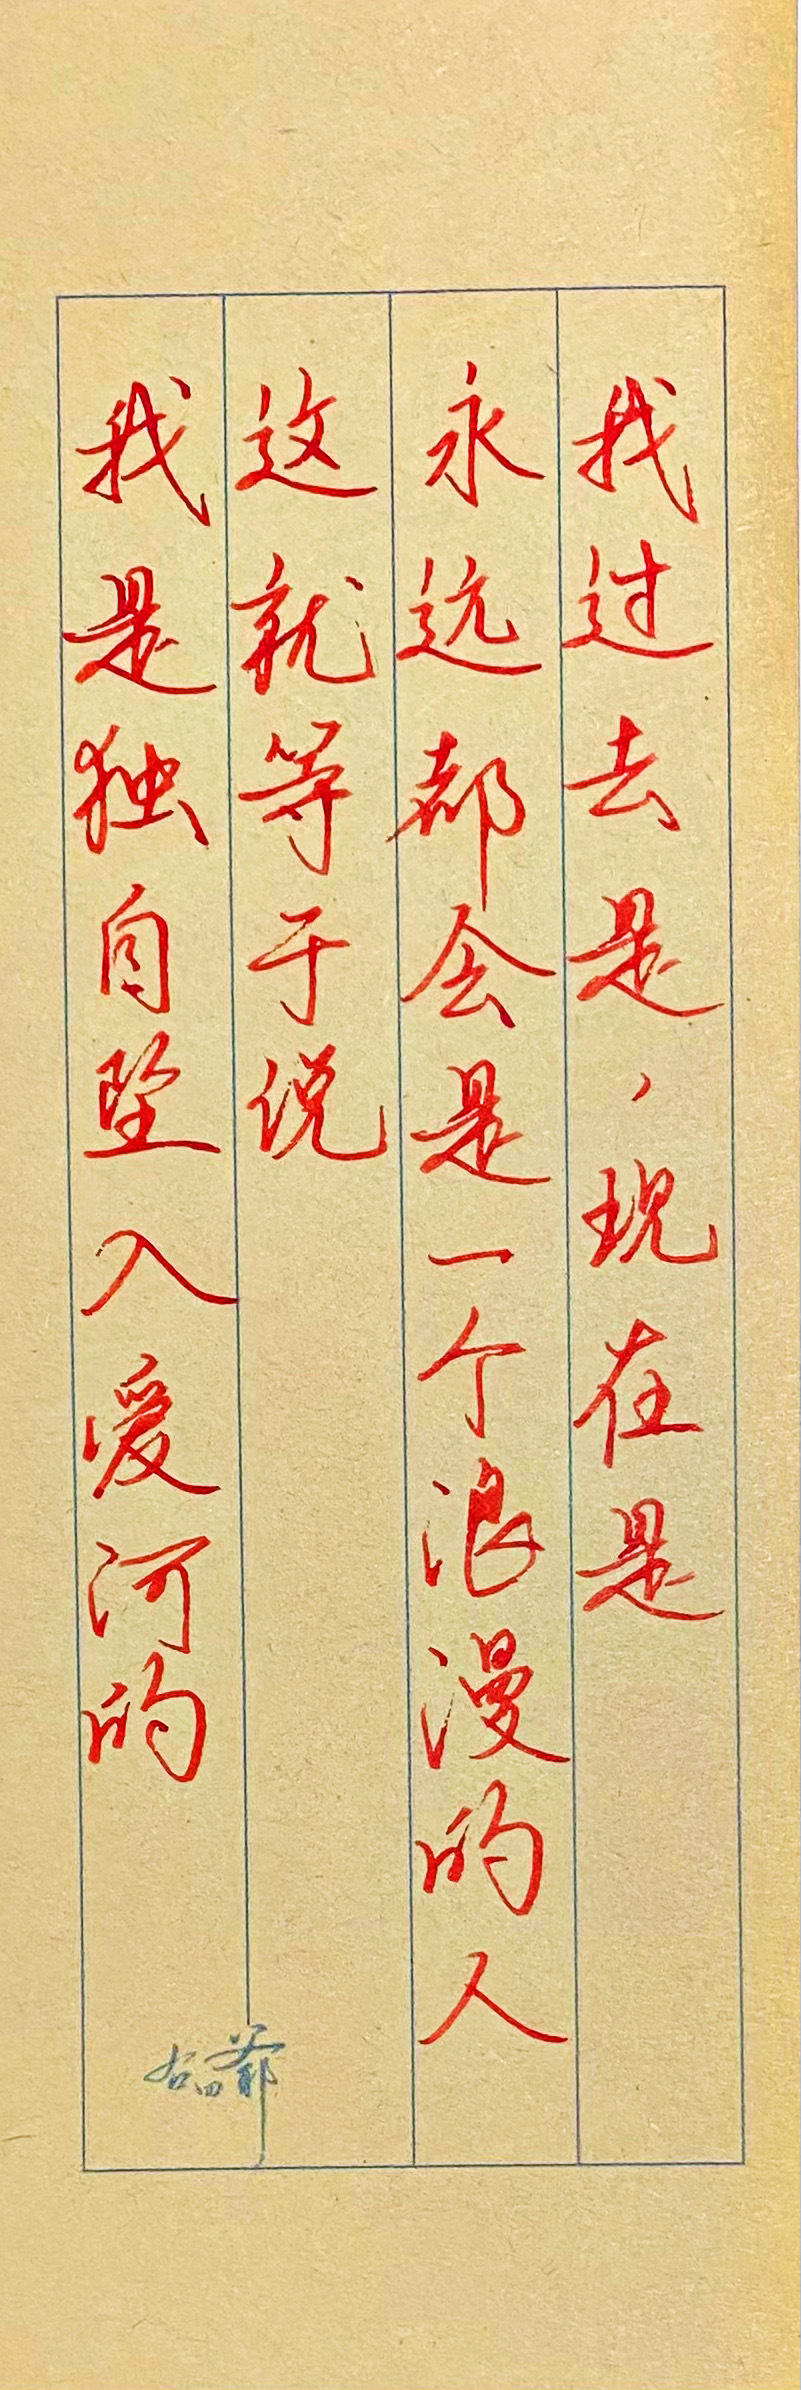 我过去是，现在是
永远都会是一个浪漫的人
这就等于说
我是独自坠入爱河的